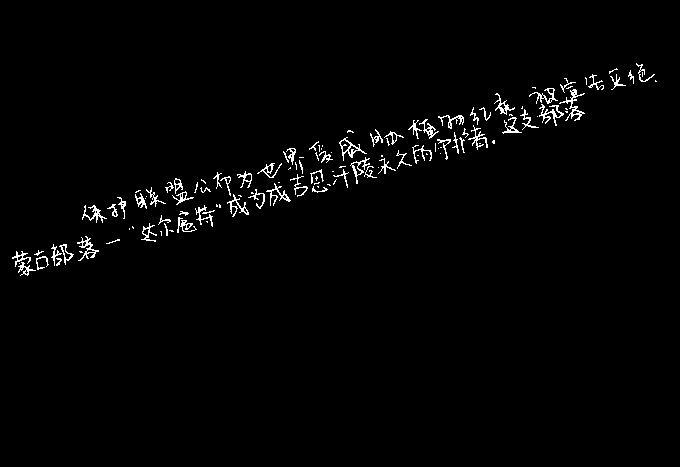 保护联盟公布为世界受威胁植物红录,被宣告灭绝.
蒙古部落一“达尔扈特”成为成吉思汗陵永久的守护者.这支部落